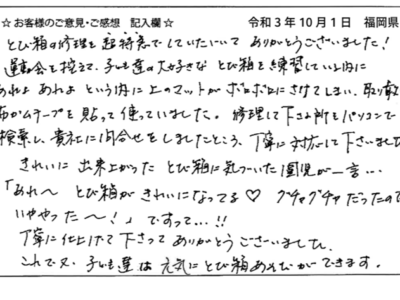 ☆お客様のご意見・ご感想 記入欄☆ 令和3年10月1日 福岡県
とび箱の修理を超特急でしていただいて ありがとうございました!
運動会を控えて、子ども達の大好きな とび箱を練習している内に
あれよ あれよ という内に上のマットが ボロボロにさけてしまい、取り敢えず
布ガムテープを貼って使っていました。修理して下さる所をパソコンで
検索し、貴社に問合せをしましたところ、丁寧に対応して下さいました
きれいに 出来上がった とび箱に気づいた園児が一言…
「あれ~ とび箱が きれいになってる♡ グチャグチャだったので
いややった~!」ですって…!!
丁寧に仕上げて下さって ありがとうございました。
これで又、子ども達は元気に とび箱あそびができます。